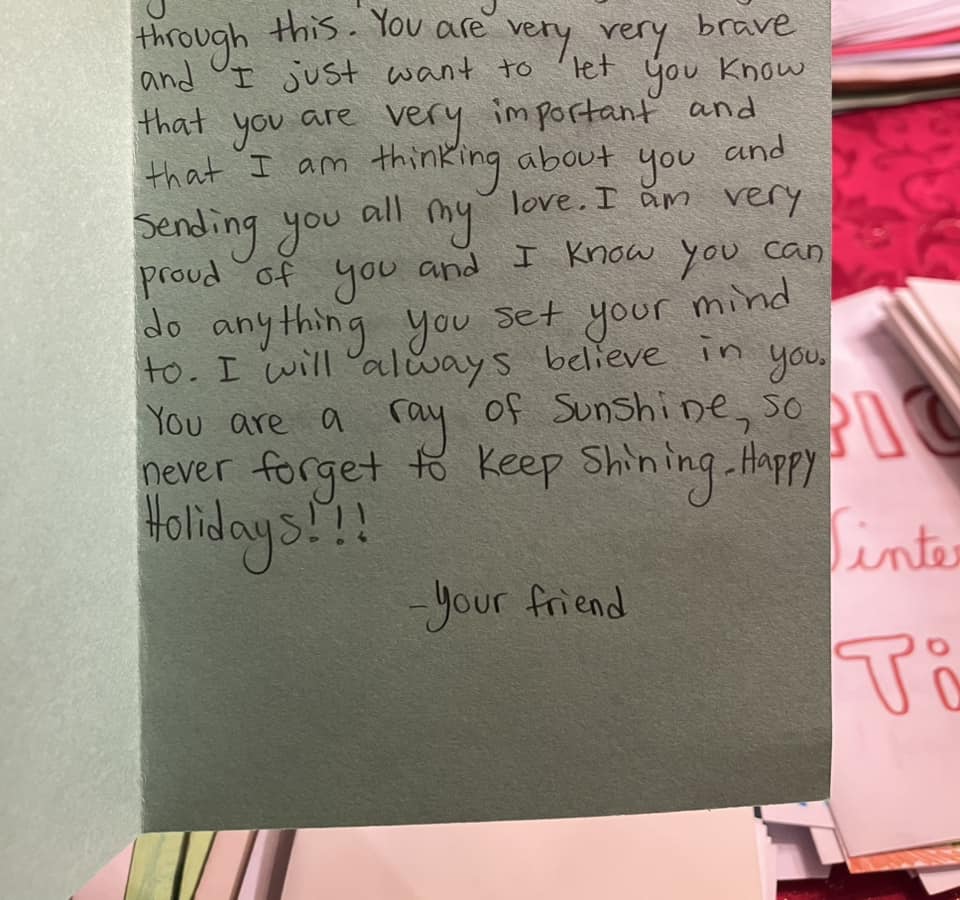 through this. You are very very brave
and I just want to let you know
that you are very important and
that I am thinking about you and
sending you all my love. I am very
proud of you and I know you can
do anything you set your mind
to. I will always believe in you.
You are a ray of Sunshine, so
never forget to keep Shining. Happy
Holidays!!!
-your friend